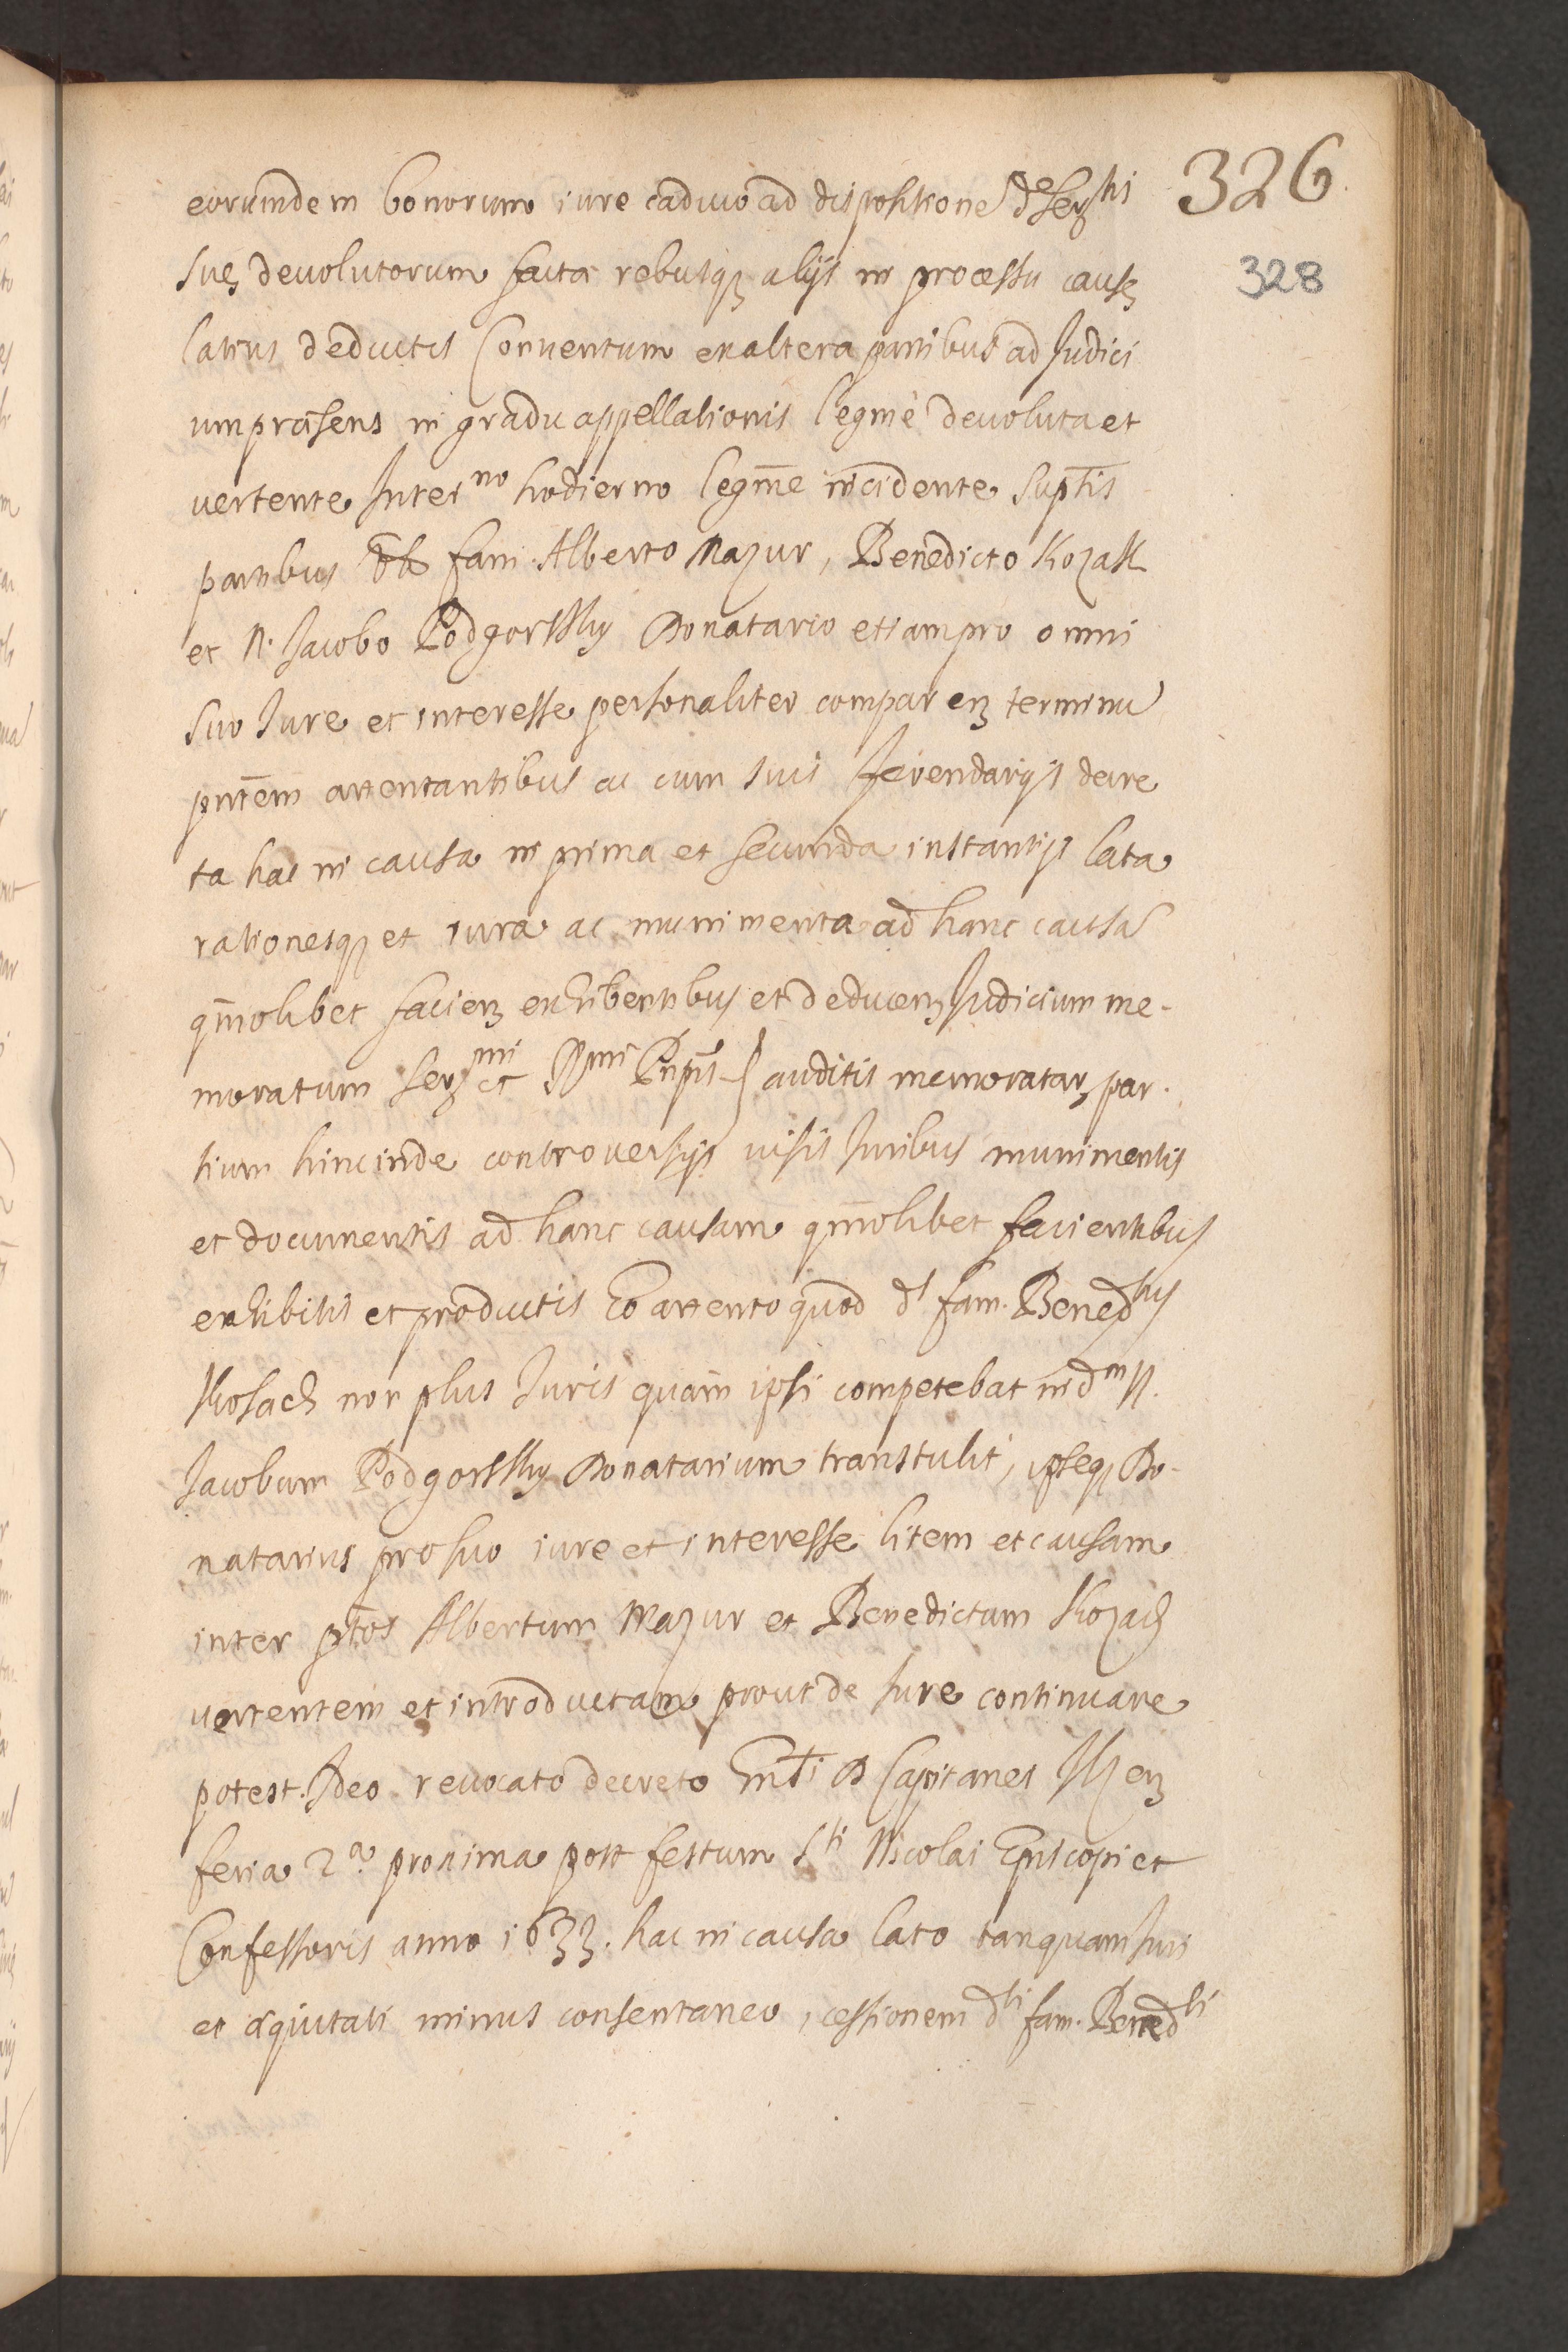 326
328
eorundem bonorum iure caduco ad dispositionē Sertis
suę devolutorum facta rebusq alijs in processu causę
latius deductis Conventum ex altera partibus ad Judici
um præsens in gradu appellationis legmē devoluta et
vertente Interno hodierno legme̅ incidente sup̅tis
partibus fam. Alberto Mazur, Benedicto Kozak
et N. Jacobo Podgorskky Donatario etiam pro omni
suo Jure et interesse personaliter comparen terminū
pn̅tem attentantibus ac cum suis Ferendarijs decre
ta hac in causa in prima et secunda instantijs lata
rationesq et iura ac munimenta ad hanc causā
qm̅olibet facien exhibentibus et deducen Judicium me-
moratum Ser et auditis memoratar par-
tium hincinde controversijs visis Juribus munimentis
et documentis ad hanc causam qm̅olibet facientibus
exhibitis et productis Eo attento quod ds fam. Bened̅tus
Kosach non plus Juris quam ipsi competebat in dm N.
Jacobum Podgorskky Donatarium transtulit, ipseq Do-
natarius pro suo iure et interesse litem et causam
inter pt̅os Albertum Mazur et Benedictum Kozach
vertentem et introductam prout de Jure continuare
potest. Ideo revocato decreto D Capitanei
feria 2a proxima post festum Sti Nicolai Episcopi et
Confessoris anno 1633. hac in causa lato tanquam Juri
et æquitati minus consentaneo, cessionem dti fam. Benedti